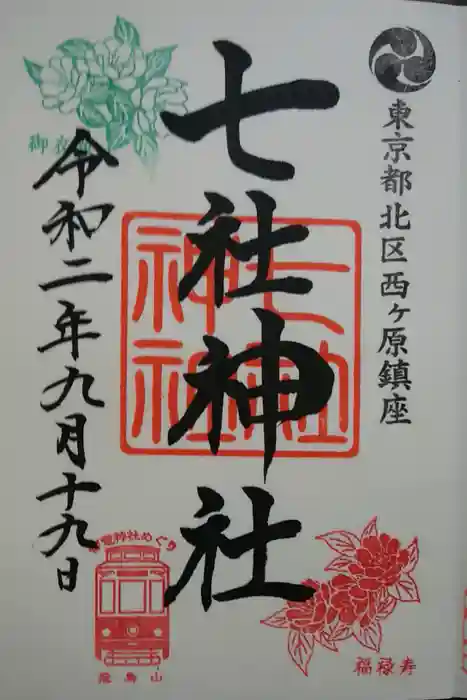 東京都北区西ヶ原鎮座
七社神社
七社神社
令和二年九月十九日
電神社めぐり
飛鳥山
福禄寿